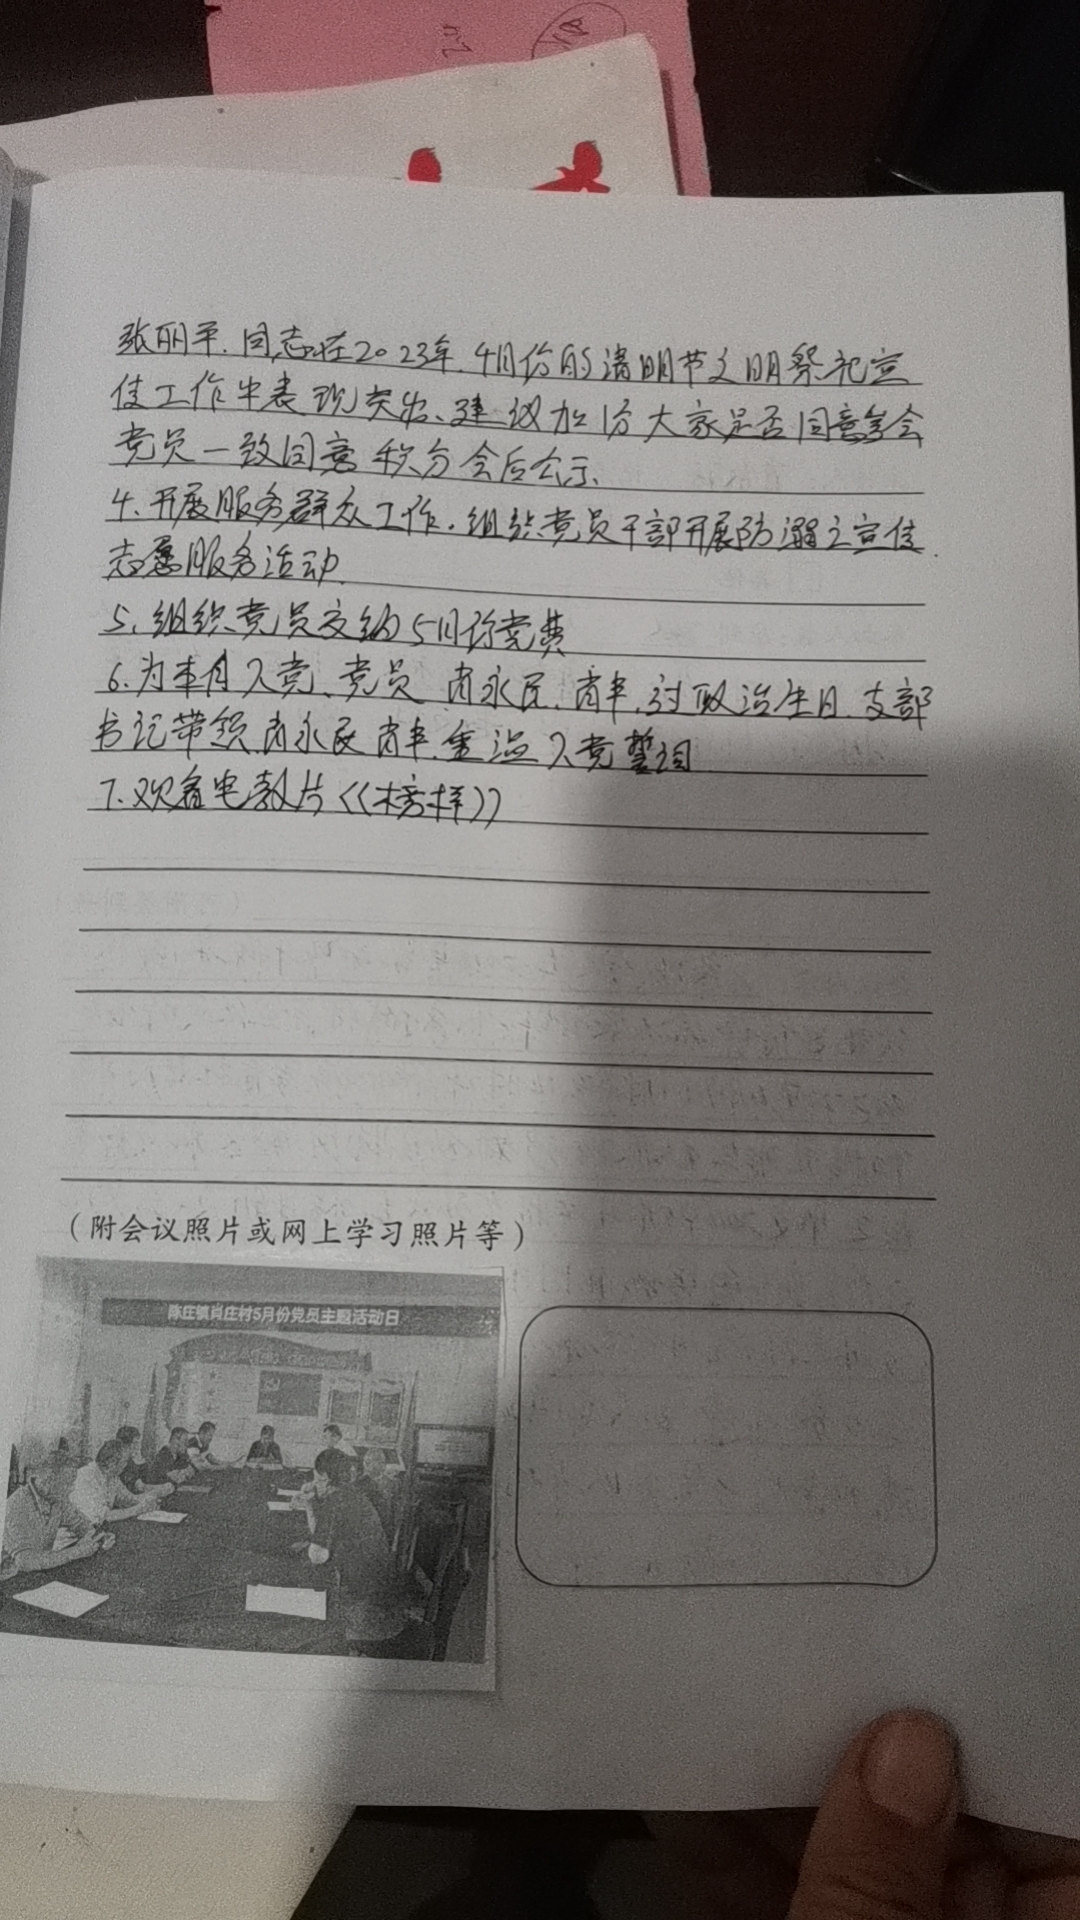 张丽平.同志在2023年.4月份的清明节文明祭祀宣
传工作中表现突出、建议加1分大家是否同意参会
党员一致同意 积分会后公示、
4.开展服务群众工作.组织党员干部开展防溺亡宣传.
志愿服务活动.
5.组织党员交纳5月份党费
6.为本月入党、党员 肖永民.肖丰.过政治生日.支部
书记带领.肖永民 肖丰.重温入党誓词
7.观看电教片《榜样》
(附会议照片或网上学习照片等)
陈庄镇肖庄村5月份党员主题活动日